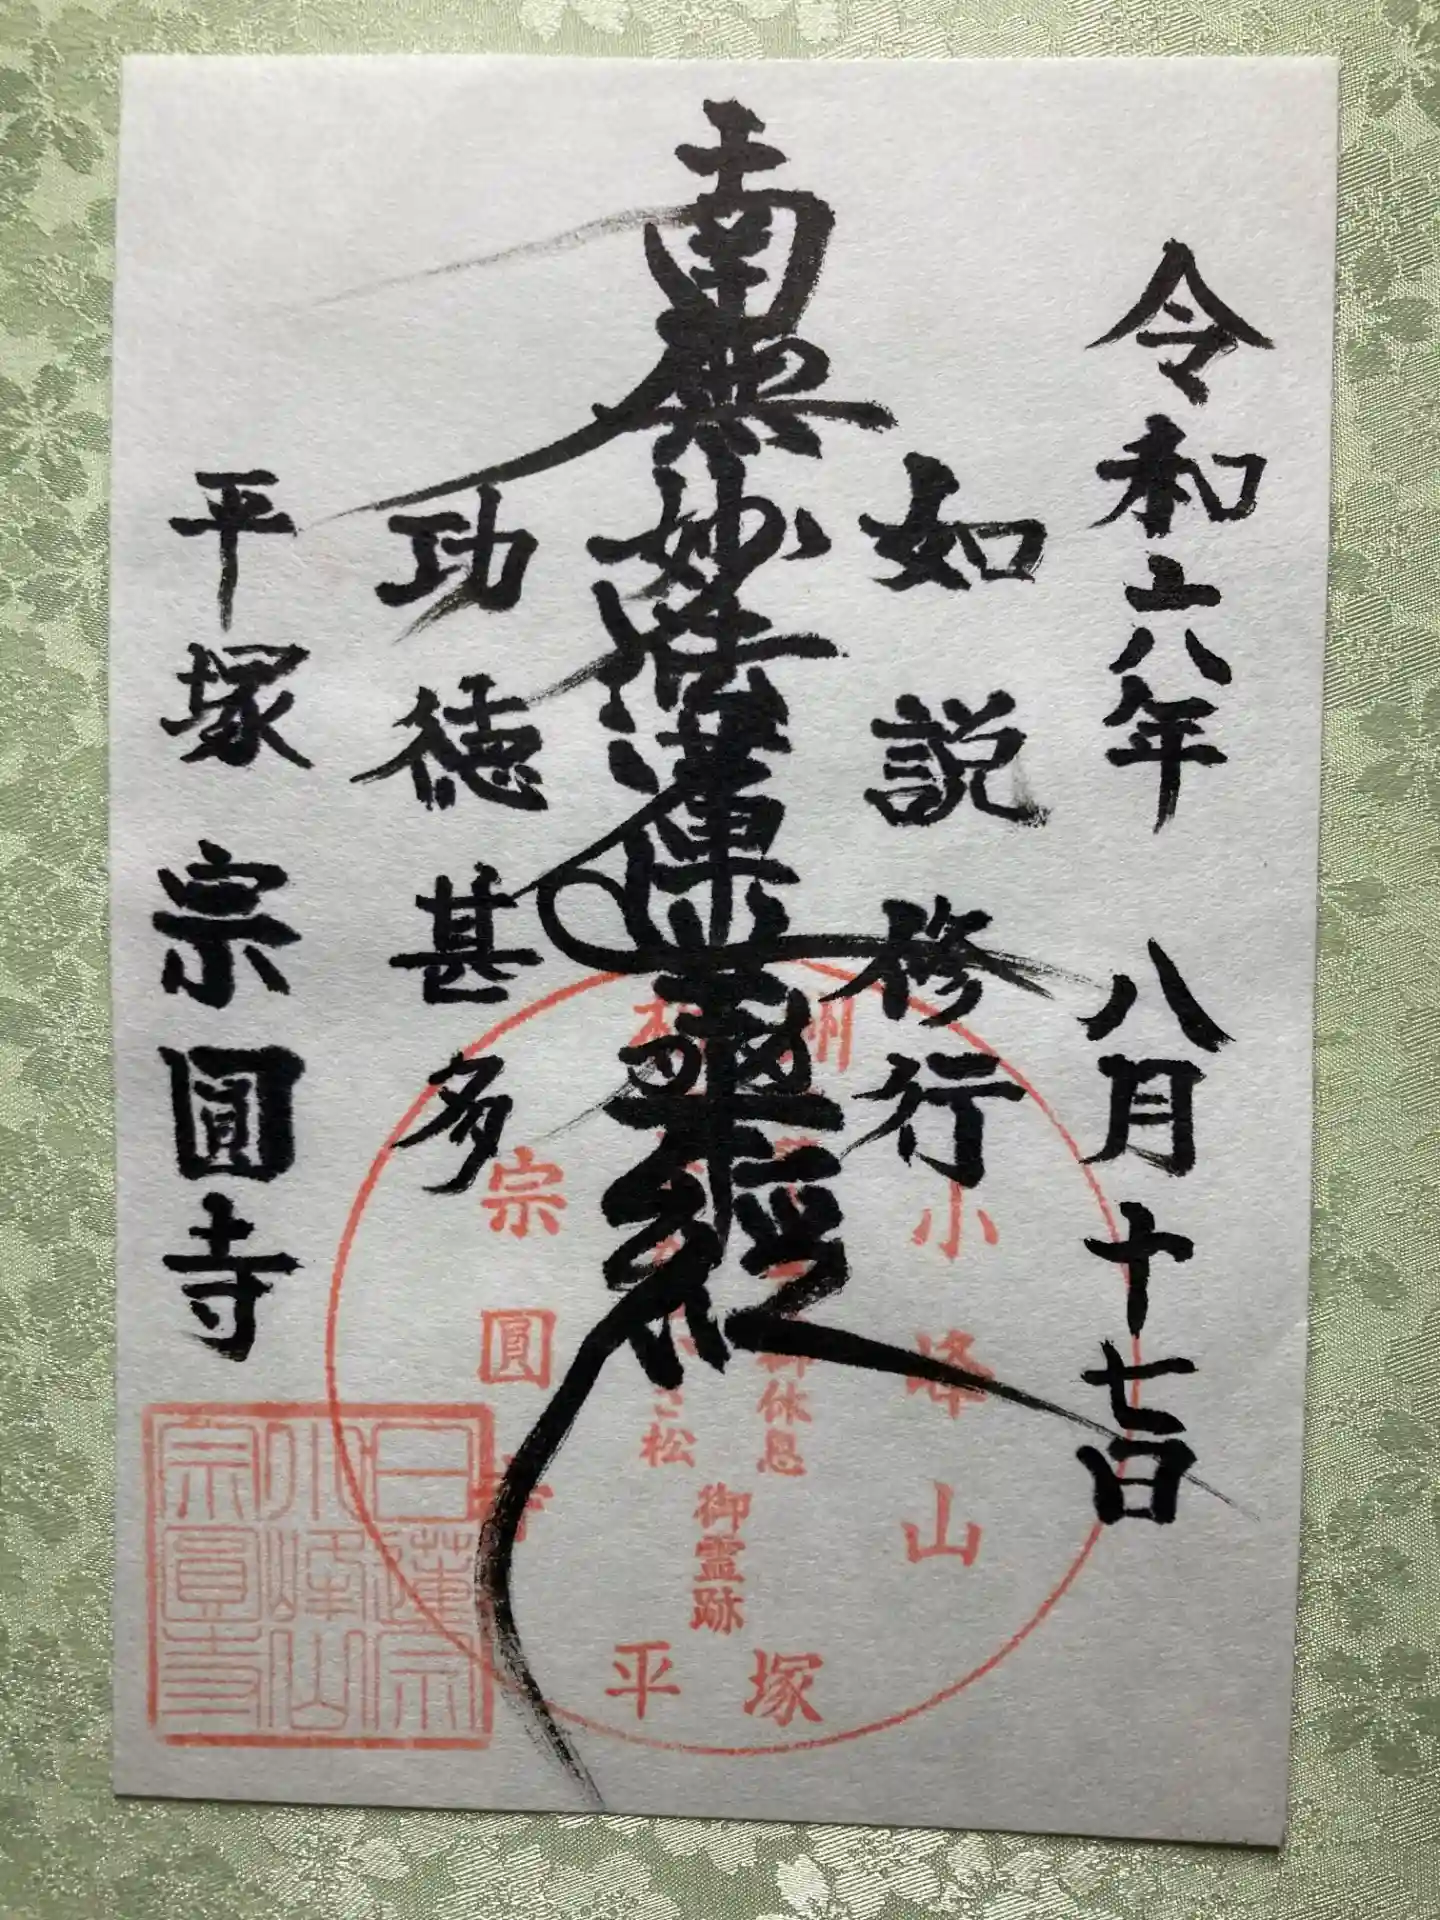 令和六年 八月十七日
如説修行
南無妙法蓮華経
功徳甚多
平塚 宗圓寺
小峰山
御休息
松
御霊跡
宗圓寺
平塚
日蓮宗
小峰山
宗圓寺